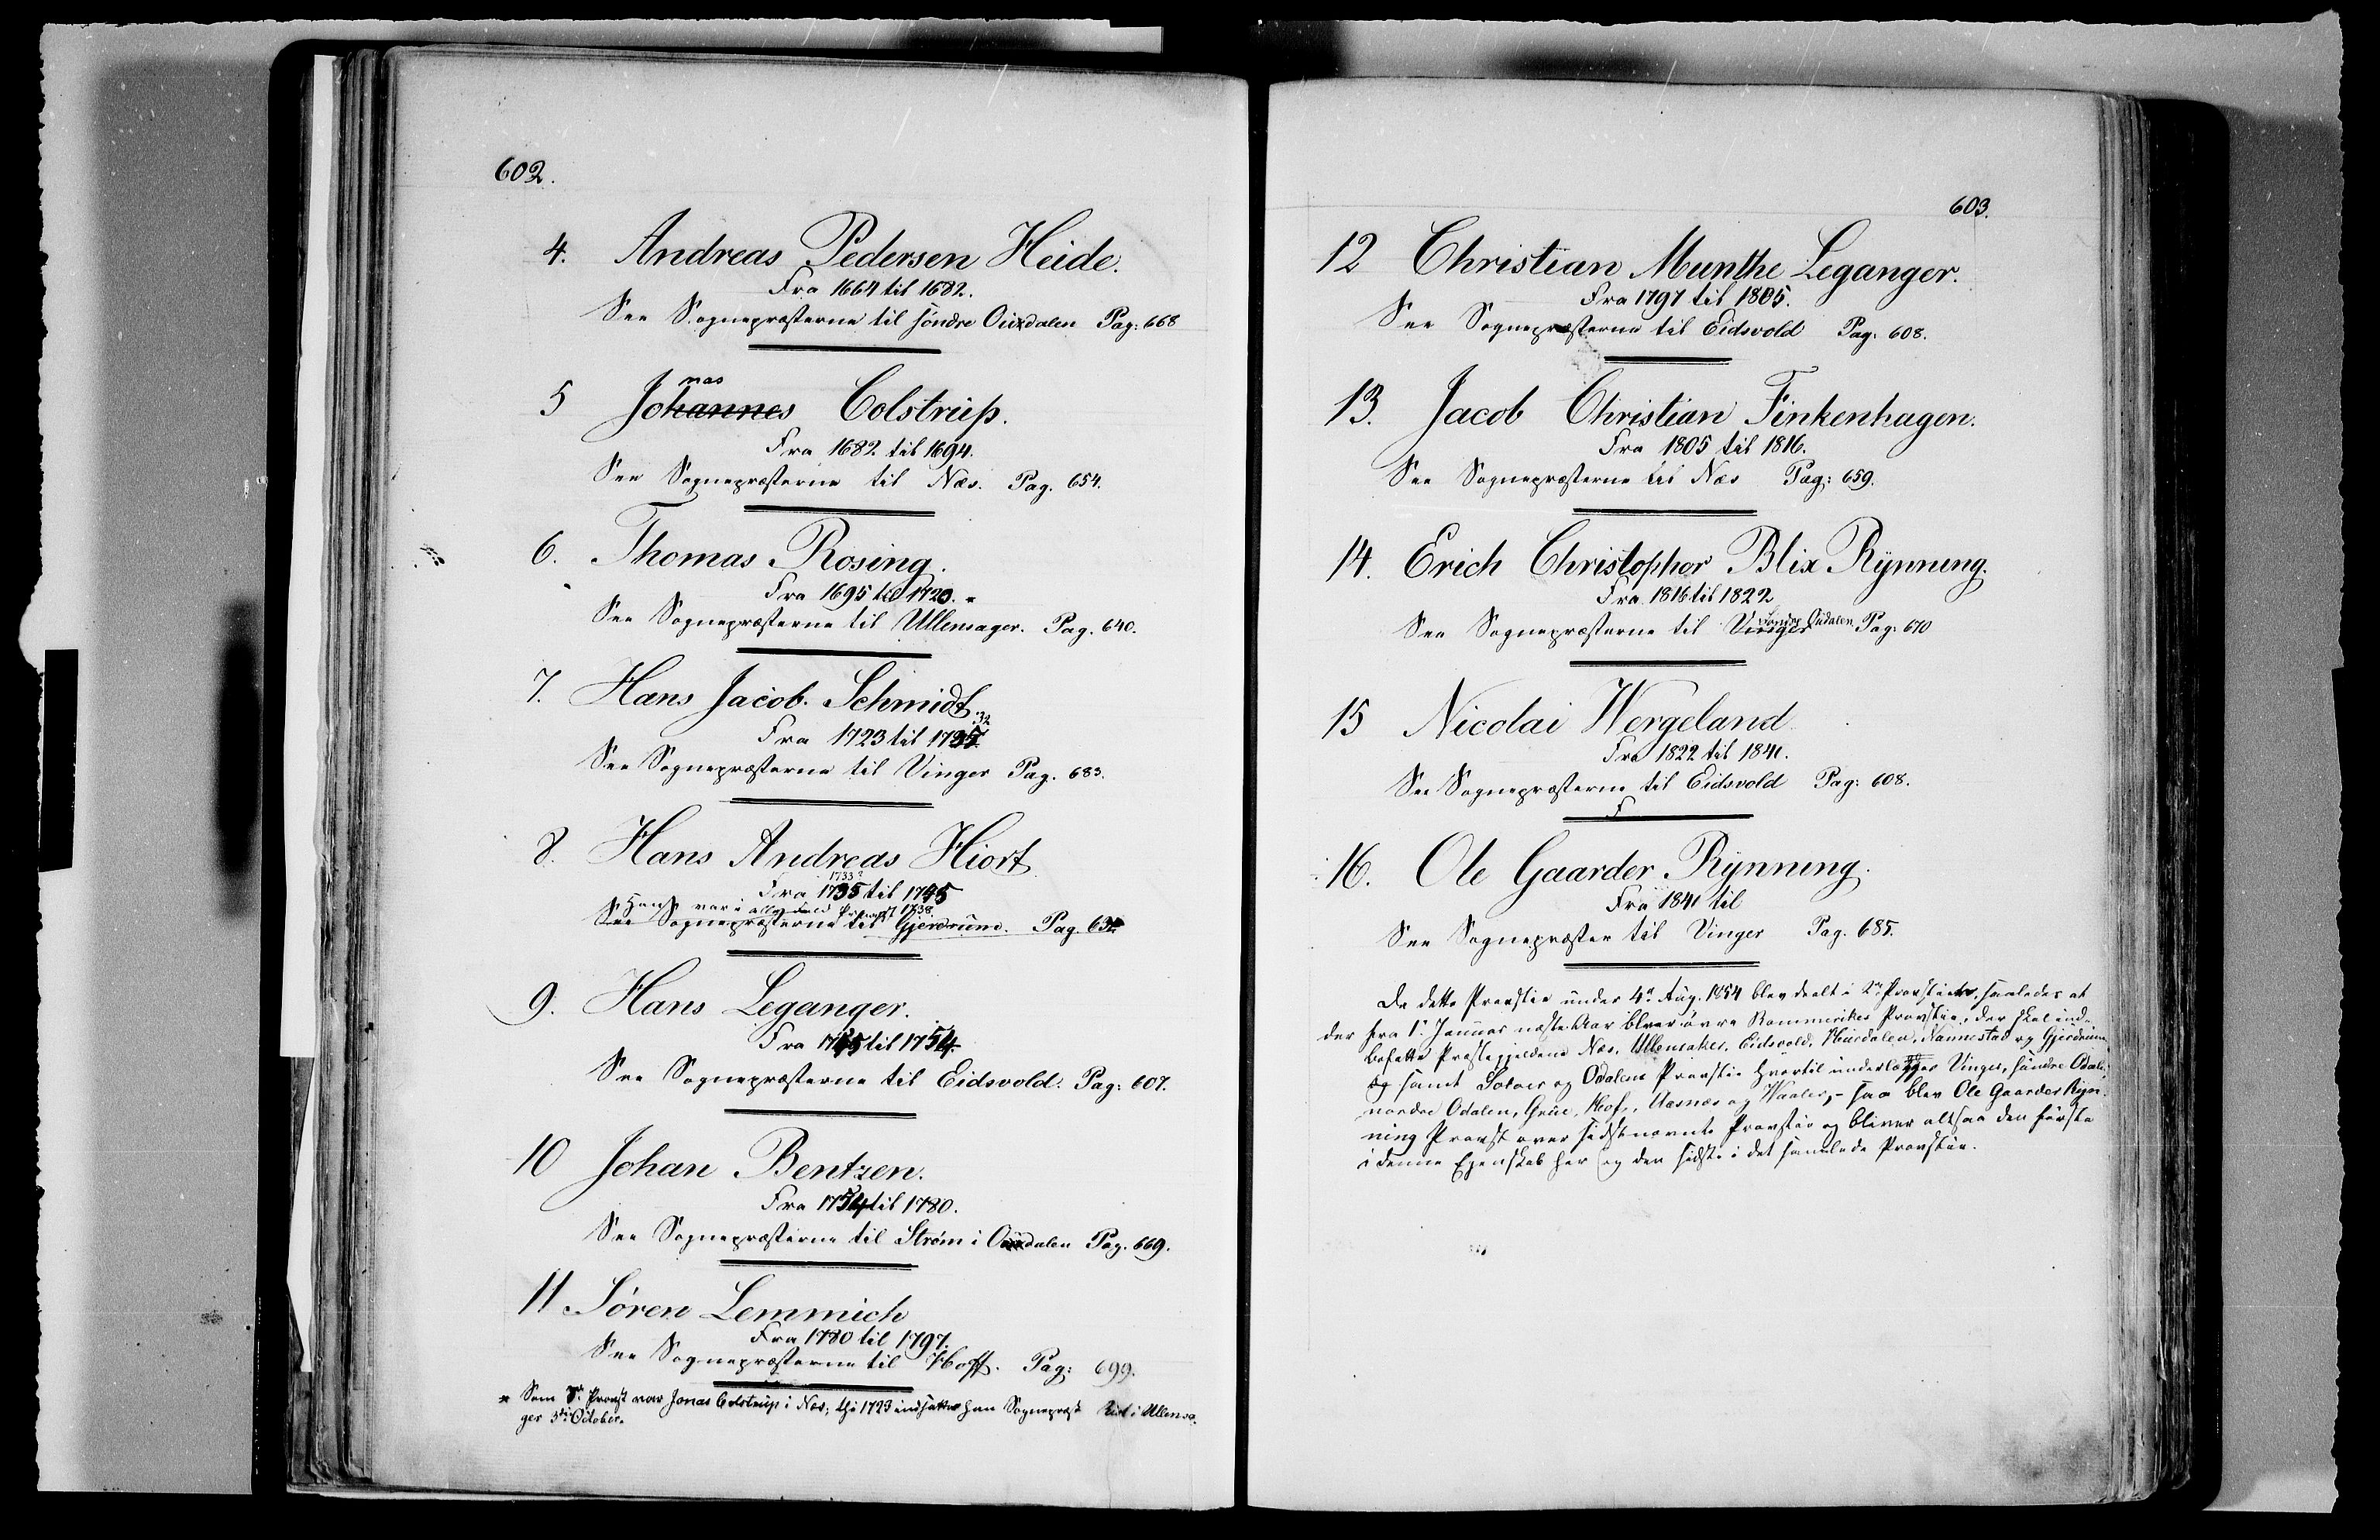 602.
4. Andreas Pedersen Heide.
Fra 1664 til 1682.
See Sognepræsterne til søndre Oudalen Pag: 668
nas
5 Johannes Colstrup.
Fra 1682 til 1694.
See Sognepræsterne til Næs. Pag. 654.
6. Thomas Rosing.
Fra 1695 til 1720. *
See Sognepræsterne til Ullensager. Pag. 640.
7. Hans Jacob Schmidt.
32
Fra 1723 til 1735
See Sognepræsterne til Vinger Pag. 683.
8. Hans Andreas Hiort
1733?
Fra 1735 til 1745
Han var i alle Fald Provst 1738.
See Sognepræsterne til Gjerdrum. Pag. 632
9. Hans Leganger.
Fra 1745 til 1754.
See Sognepræsterne til Eidsvold. Pag: 607.
10 Johan Bentzen.
Fra 1754 til 1780.
See Sognepræsterne til Strøm i Oudalen Pag. 669.
11 Søren Lemmich
Fra 1780 til 1797.
See Sognepræsterne til Hoff. Pag: 699.
* Som Provst var Jonas Colstrup i Næs; thi 1723 indsatte han Sognepræst i Ullensa-
ger 5te October.
603.
12 Christian Munthe Leganger.
Fra 1797 til 1805.
See Sognepræsterne til Eidsvold Pag. 608.
13. Jacob Christian Finkenhagen.
Fra 1805 til 1816.
See Sognepræsterne til Næs Pag: 659.
14. Erich Christopher Blix Rynning.
Fra 1816 til 1822
søndre Oudalen
See Sognepræsterne til Vinger Pag: 670
15 Nicolai Wergeland
Fra 1822 til 1841.
See Sognepræsterne til Eidsvold Pag: 608.
16. Ole Gaarder Rynning.
Fra 1841 til
See Sognepræster til Vinger Pag. 685.
Da dette Provstie under 4de Aug. 1854 blev deelt i 2de Provstier, saaledes at
der fra 1ste Januar næste Aar bliver øvre Rommerikes Provstie, der skal ind-
befatte Præstegjeldene Næs, Ullensaker, Eidsvold, Hurdalen, Nannestad og Gjerdrum
og samt Soløer og Odalens Provstie hvortil underlægges Vinger, søndre Odalen,
nordre Odalen, Grue, Hof, Aasnæs og Vaaler, - saa blev Ole Gaarder Ryn-
ning Provst over sidstnævnte Provstie og bliver altsaa den første
i denne Egenskab her og den sidste i det samlede Provstie.